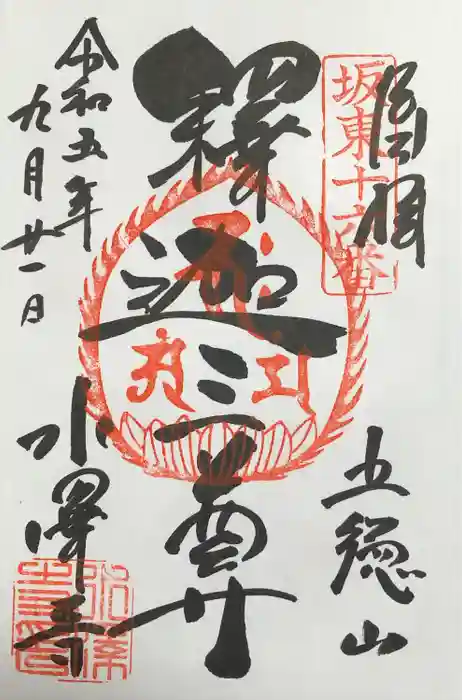 坂東十六番
五徳山
釋迦三尊
令和五年
九月廿一日
水澤寺